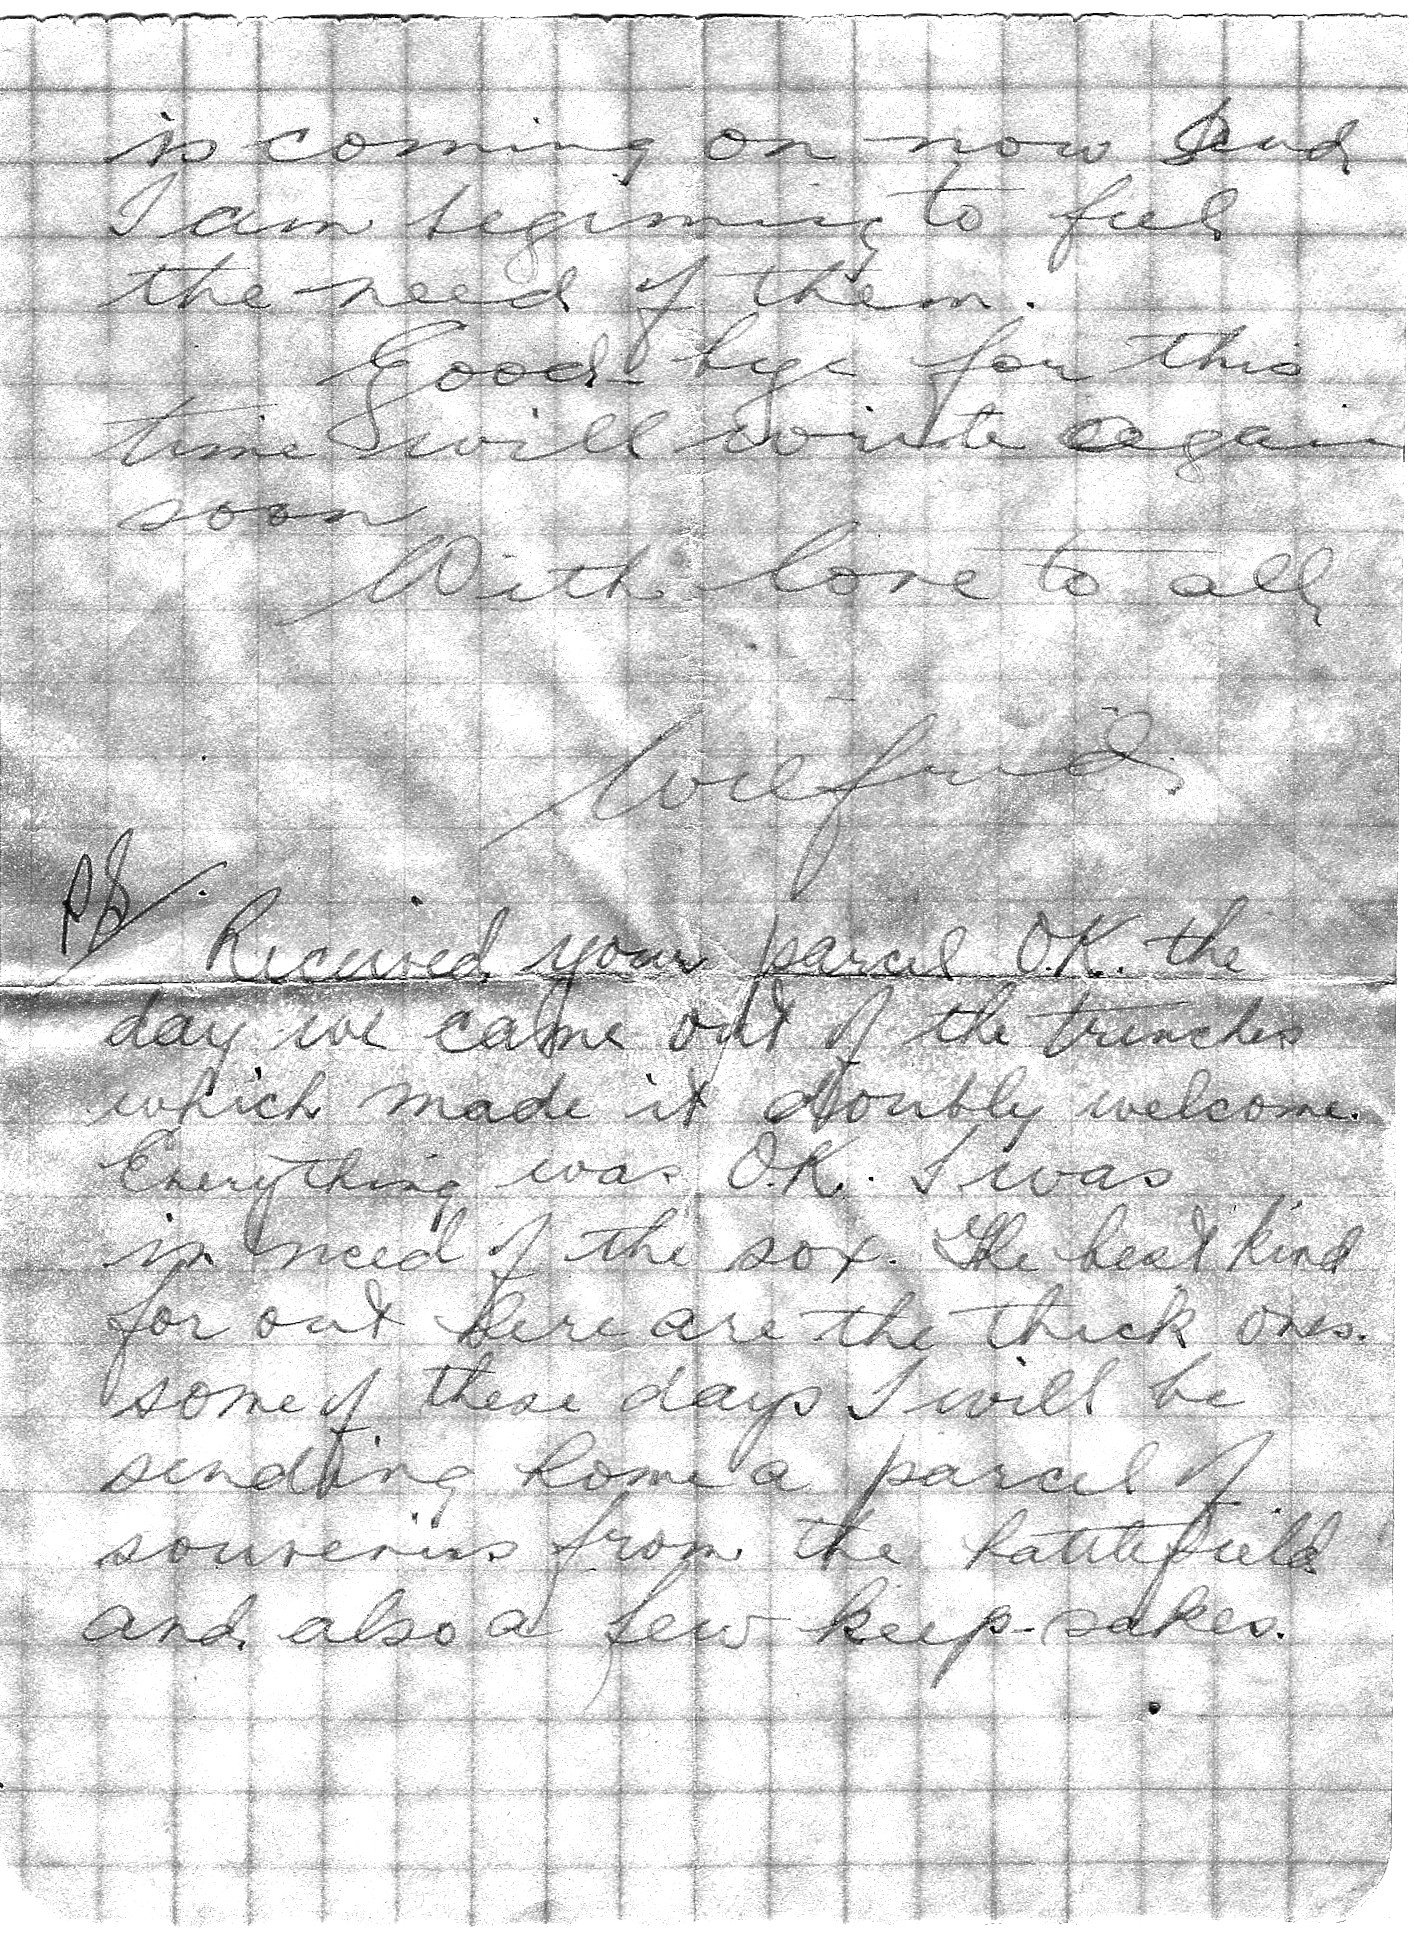 is coming on now and
I am beginning to feel
the need of them.
Good-bye for this
time will write again
soon
With love to all
Wilfrid.
PS.
Received your parcel O.K. the
day we came out of the trenches
which made it doubly welcome.
Everything was O.K. I was
in need of the sox. The best kind
for out here are the thick ones.
some of these days I will be
sending home a parcel of
souvenirs from the battlefield
and also a few keep-sakes.